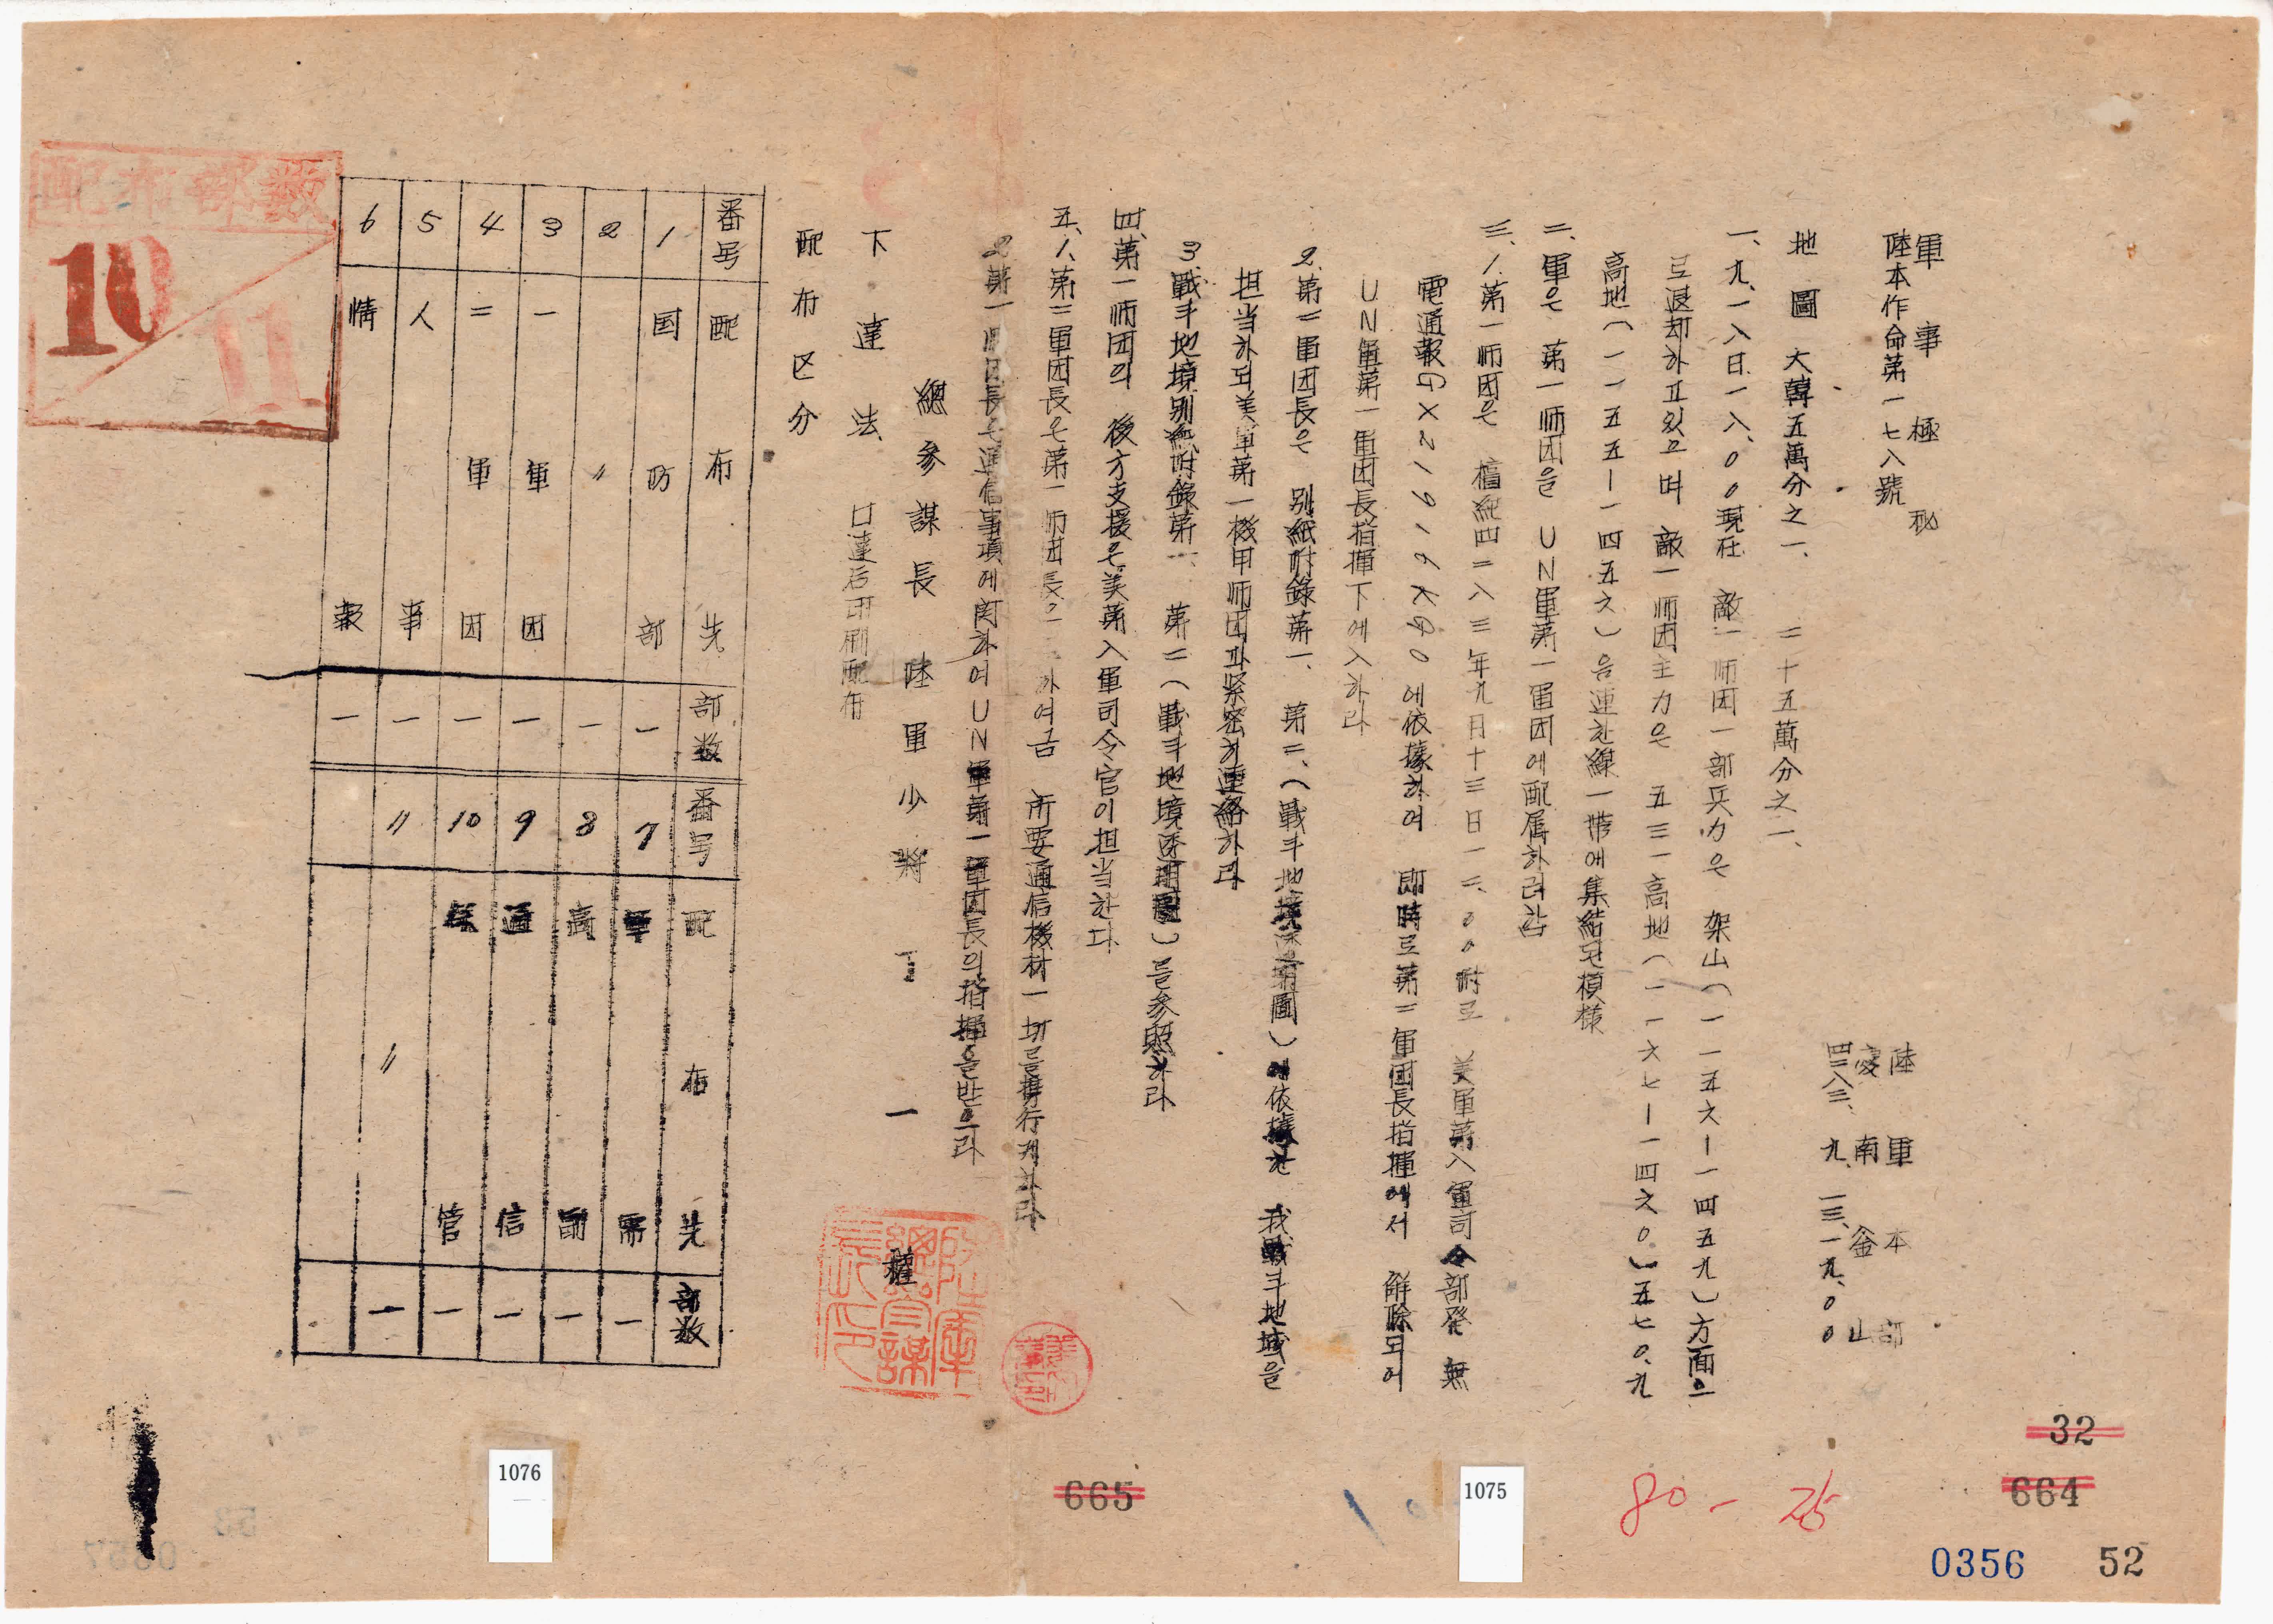 軍事極秘
陸本作命第一七八號
陸軍本部
慶南釜山
四二八三、九、一三、一九、00
地圖 大韓五萬分之一、 二十五萬分之一、
一、九、一八日一八、00現在 敵一师团一部兵力은 架山(一一五六—一四五九)方面으
로退却하고있으며 敵一师团主力은 五三一高地(一一六七—一四六0)五七0.九
高地(一一五五—一四五六)을連한線一帶에集結된模樣
二、軍은 第一师团을 UN軍第一軍团에配属하려함
三、1.第一师团은 檀紀四二八三年九月十三日一二、00附로 美軍第八軍司令部発 無
電通報GX21916KGO에依據하여 即時로第二軍团長指揮에서 解除되어
UN軍第一軍团長指揮下에入하라
2.第二軍团長은 別紙附錄第一、第二、(戰斗地境透明圖)에依據한 我戰斗地域을
担当하되美軍第一機甲师团과緊密히連絡하라
3.戰斗地境別紙附錄第一、第二(戰斗地境透明圖)를参照하라
四、第一师团의 後方支援은美第八軍司令官이担当한다
五、1.第二軍团長은第一师团長으 하여금 所要通信機材一切를携行케하라
2.第一师团長은通信事項에関하여UN軍第一軍团長의指揮을받으라
總參謀長 陸軍少將 丁一權
下達法 口達后印刷配布
配布区分
番号 配布先 部数
1 国防部 一
2 〃 一
3 一軍团 一
4 二軍团 一
5 人事 一
6 情報 一
番号 配布先 部数
7 軍需 一
8 高副 一
9 通信 一
10 经管 一
11 〃 一
配布部数
10/11
32
664
665
80 -
1075
1076
0356
52